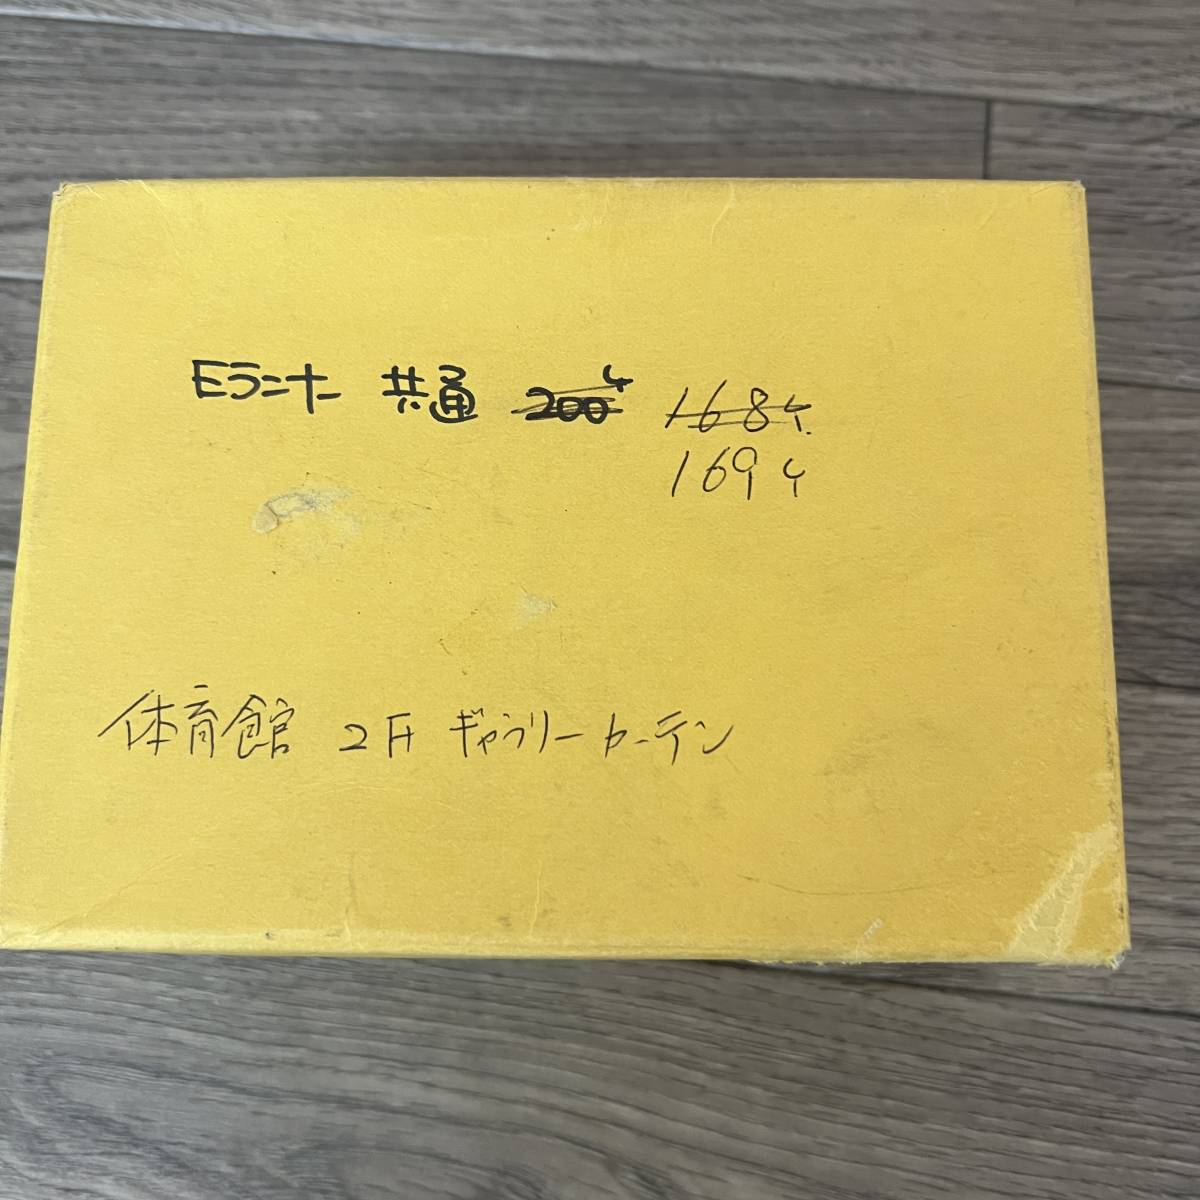 Eランナー 共通 200ケ 168ケ
169ケ
体育館 2F ギャラリーカーテン